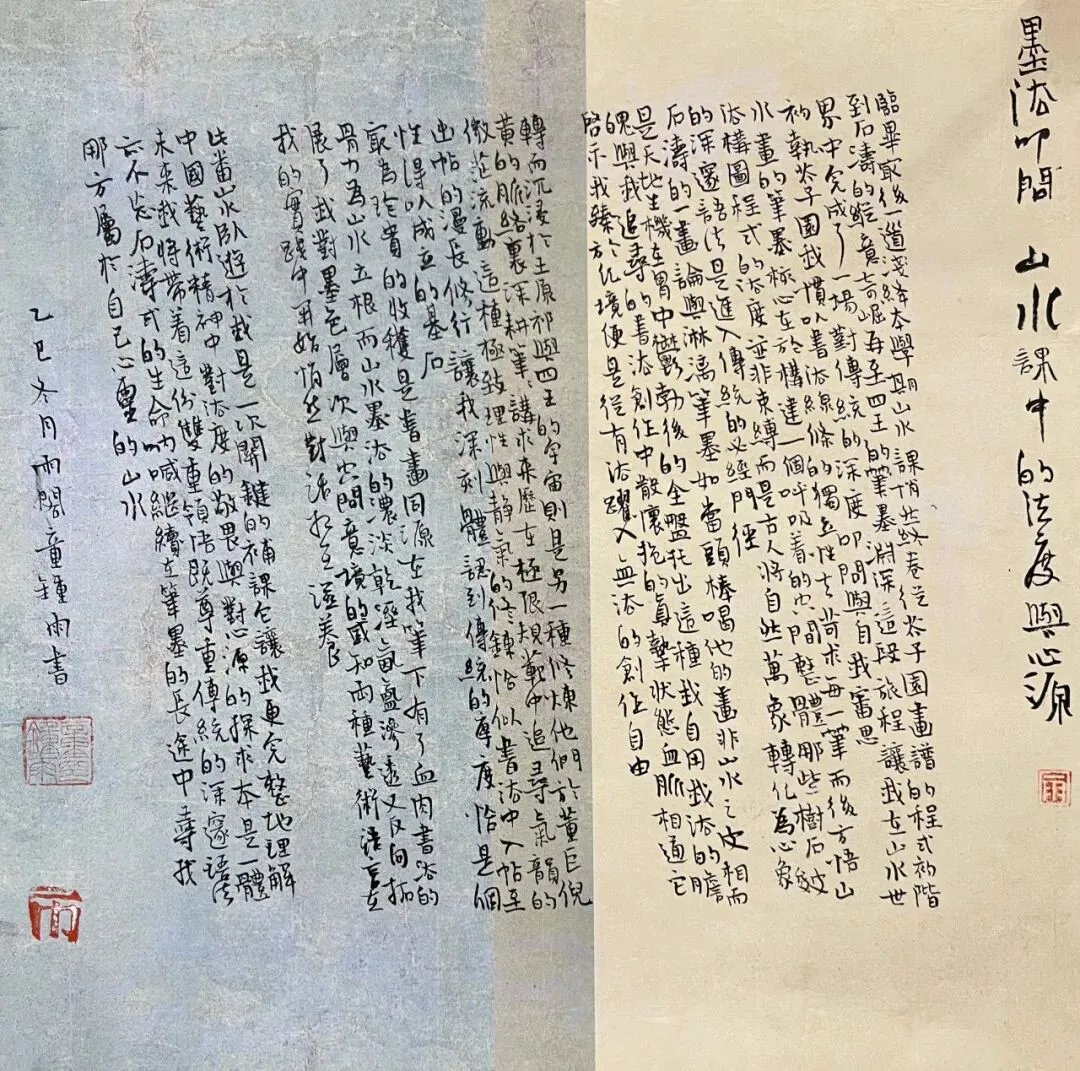 墨法叩問 山水課中的法度與心源
臨畢最後一道淺絳本學期山水課悄然終卷從芥子園畫譜的程式初階
到石濤的縱意奇崛再至四王的筆墨淵深這段旅程讓我在山水世
界中完成了一場對傳統的深度叩問與自我審思
初執芥子園我慣以書法線條的獨立性去苛求每一筆而後方悟山
水畫的筆墨核心在於構建一個呼吸着的空間整體那些樹石皴
法構圖程式的法度並非束縛而是古人將自然萬象轉化為心象
的深邃語法是進入傳統的必經門徑
石濤的一畫論與淋漓筆墨如當頭棒喝他的畫非山水之皮相而
是天地生機在胃中鬱勃後的全盤托出這種我自用我法的膽
魄與我追尋的書法創作中散懷抱的真摯狀態血脈相通它
啓示我臻於化境便是從有法躍入無法的創作自由
轉而沉浸於王原祁與四王的宇宙則是另一種修煉他們於董巨倪
黃的脈絡裏深耕筆筆講求來歷在極限規範中追尋氣韻的
微茫流動這種極致理性與靜氣的修鍊恰似書法中入帖至
出帖的漫長修行讓我深刻體認到傳統的厚度恰是個
性得以成立的基石
最為珍貴的收穫是書畫同源在我筆下有了血肉書法的
骨力為山水立根而山水墨法的濃淡乾溼氤氳滲透又反向拓
展了我對墨色層次與空間意境的感知兩種藝術語言在
我的實踐中開始悄然對話相互滋養
此番山水臥遊於我是一次關鍵的補課它讓我更完整地理解
中國藝術精神中對法度的敬畏與對心源的探求本是一體
未來我將帶着這份雙重領悟既尊重傳統的深邃語法
亦不忘石濤式的生命吶喊繼續在筆墨的長途中尋找
那方屬於自己心靈的山水
乙巳冬月雨閣童鍾雨書
雨